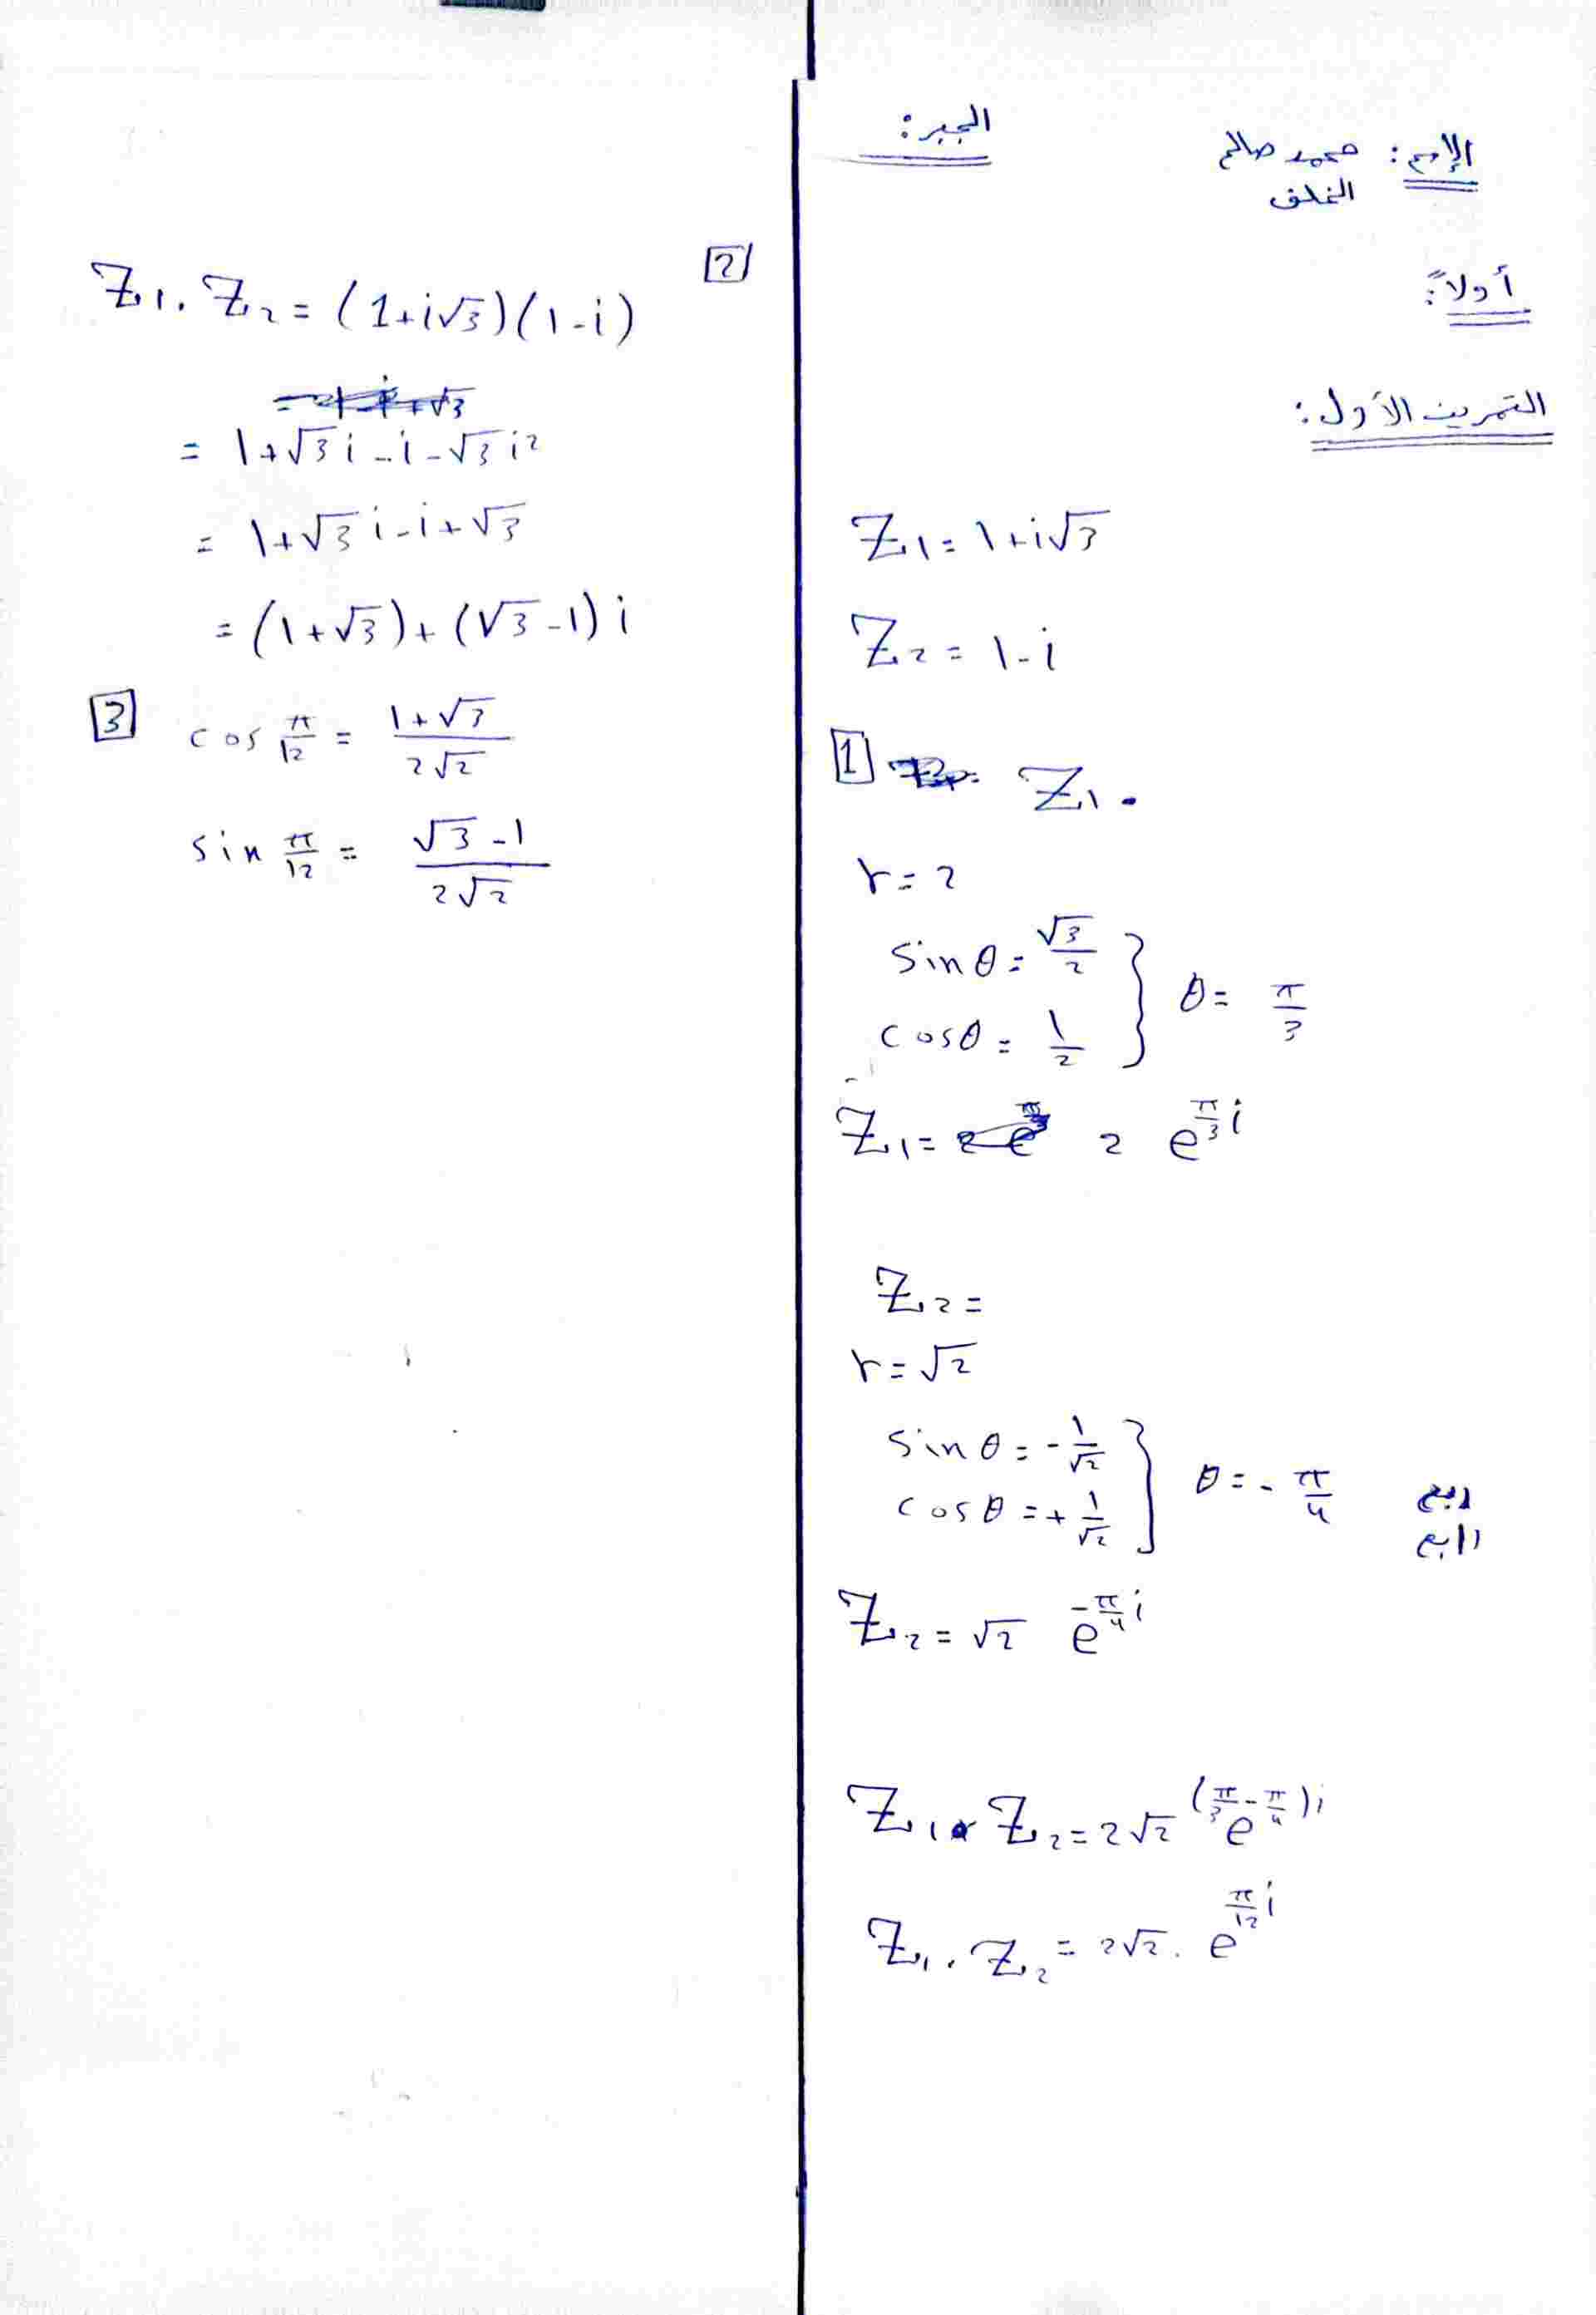 الإسم: محمد صالح
الخلف
الجبر:
أولاً:
التمرين الأول:
Z₁ = 1+i√3
Z₂ = 1-i
[1] Z₁.
r = 2
sin θ = √3/2
cos θ = 1/2 } θ = π/3
Z₁ = 2 e^(π/3 i)
Z₂ =
r = √2
sin θ = -1/√2
cos θ = +1/√2 } θ = -π/4 ربع رابع
Z₂ = √2 e^(-π/4 i)
Z₁ . Z₂ = 2√2 e^((π/3 - π/4)i)
Z₁ . Z₂ = 2√2 . e^(π/12 i)
[2]
Z₁ . Z₂ = (1+i√3)(1-i)
= 1+√3 i - i - √3 i²
= 1+√3 i - i + √3
= (1+√3) + (√3-1) i
[3] cos π/12 = (1+√3)/(2√2)
sin π/12 = (√3-1)/(2√2)